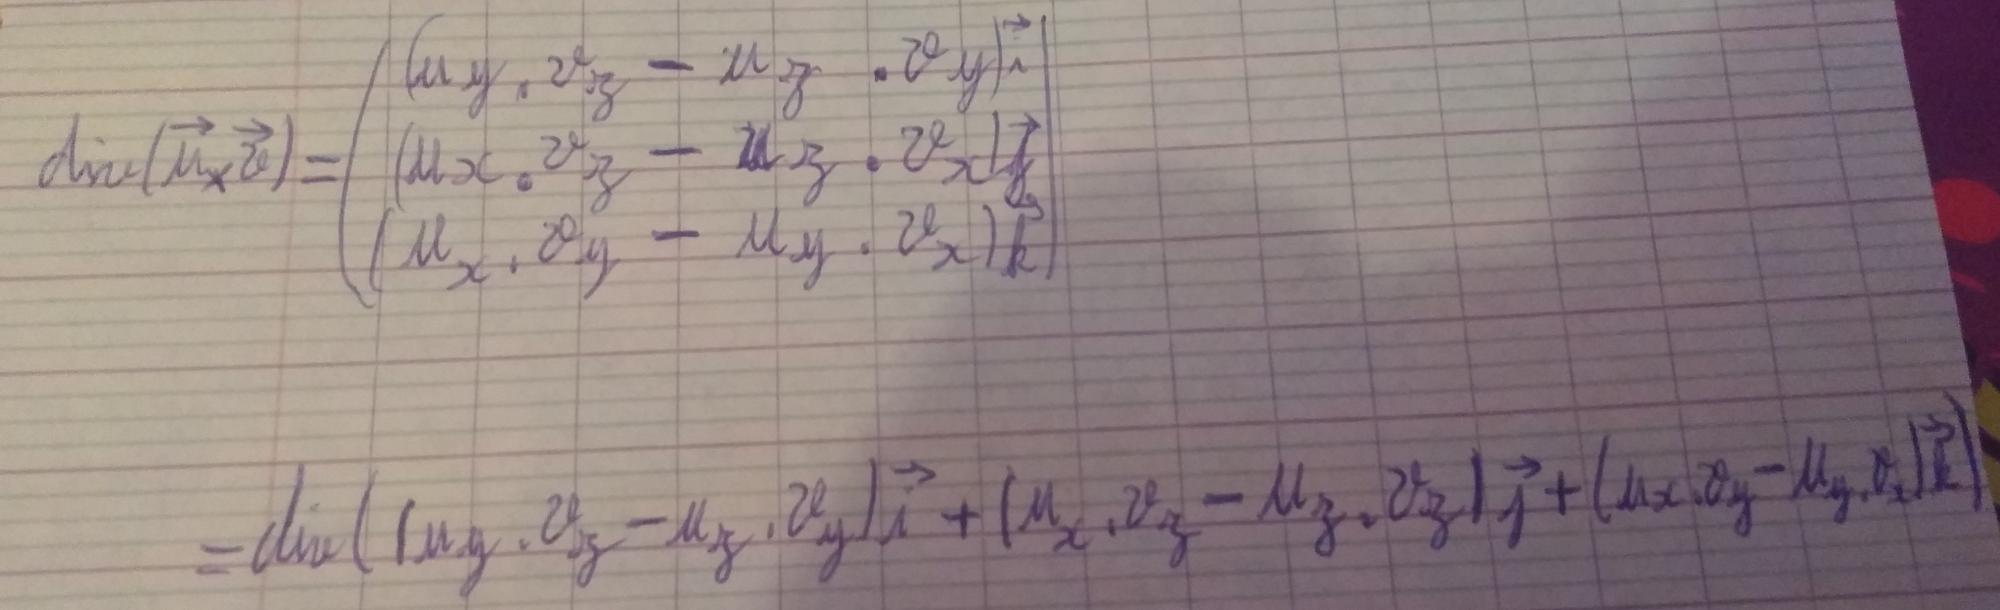 (u_y . v_z − u_z . v_y) i⃗
div(u⃗ × v⃗) = (u_x . v_z − u_z . v_x) j⃗
(u_x . v_y − u_y . v_x) k⃗
= div((u_y . v_z − u_z . v_y) i⃗ + (u_x . v_z − u_z . v_z) j⃗ + (u_x . v_y − u_y . v_x) k⃗)